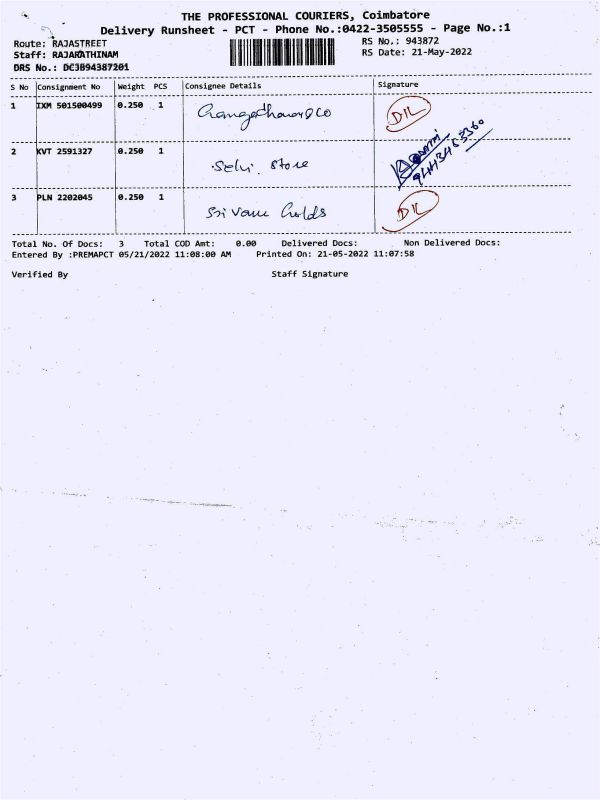 THE PROFESSIONAL COURIERS, Coimbatore
Delivery Runsheet - PCT - Phone No.:0422-3505555 - Page No.:1
Route: RAJASTREET
RS No.: 943872
Staff: RAJARATHINAM
RS Date: 21-May-2022
DRS No.: DCJB94387201
S No Consignment No Weight PCS Consignee Details Signature
1 IXM 501500499 0.250 1 & CO D/L
2 KVT 2591327 0.250 1 Selvi. Store
3 PLN 2202045 0.250 1 Sri Vani Golds D/L
Total No. Of Docs: 3 Total COD Amt: 0.00 Delivered Docs: Non Delivered Docs:
Entered By :PREMAPCT 05/21/2022 11:08:00 AM Printed On: 21-05-2022 11:07:58
Verified By Staff Signature